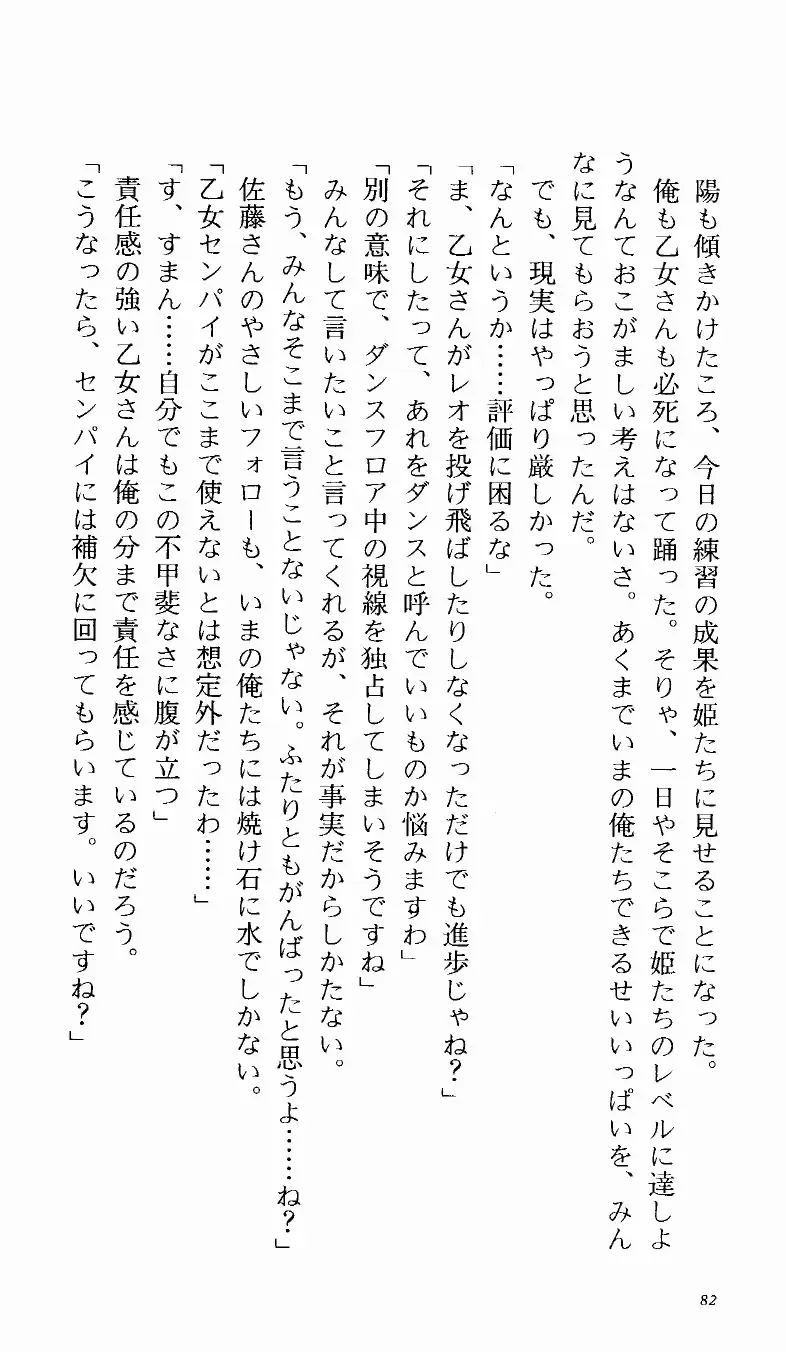 陽も傾きかけたころ、今日の練習の成果を姫たちに見せることになった。
俺も乙女さんも必死になって踊った。そりゃ、一日やそこらで姫たちのレベルに達しよ
うなんておこがましい考えはないさ。あくまでいまの俺たちできるせいいっぱいを、みん
なに見てもらおうと思ったんだ。
でも、現実はやっぱり厳しかった。
「なんというか……評価に困るな」
「ま、乙女さんがレオを投げ飛ばしたりしなくなっただけでも進歩じゃね？」
「それにしたって、あれをダンスと呼んでいいものか悩みますわ」
「別の意味で、ダンスフロア中の視線を独占してしまいそうですね」
みんなして言いたいこと言ってくれるが、それが事実だからしかたない。
「もう、みんなそこまで言うことないじゃない。ふたりともがんばったと思うよ……ね？」
佐藤さんのやさしいフォローも、いまの俺たちには焼け石に水でしかない。
「乙女センパイがここまで使えないとは想定外だったわ……」
「す、すまん……自分でもこの不甲斐なさに腹が立つ」
責任感の強い乙女さんは俺の分まで責任を感じているのだろう。
「こうなったら、センパイには補欠に回ってもらいます。いいですね？」
82